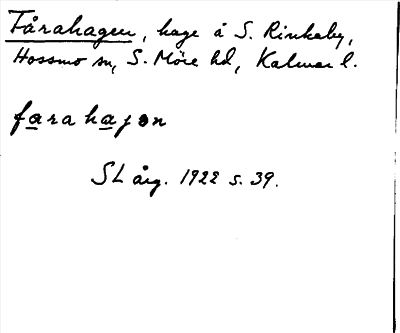 Fårahagen, hage å S. Rinkaby,
Hossmo sn, S. Möre hd, Kalmar l.
farahajən
SL årg. 1922 s. 39.